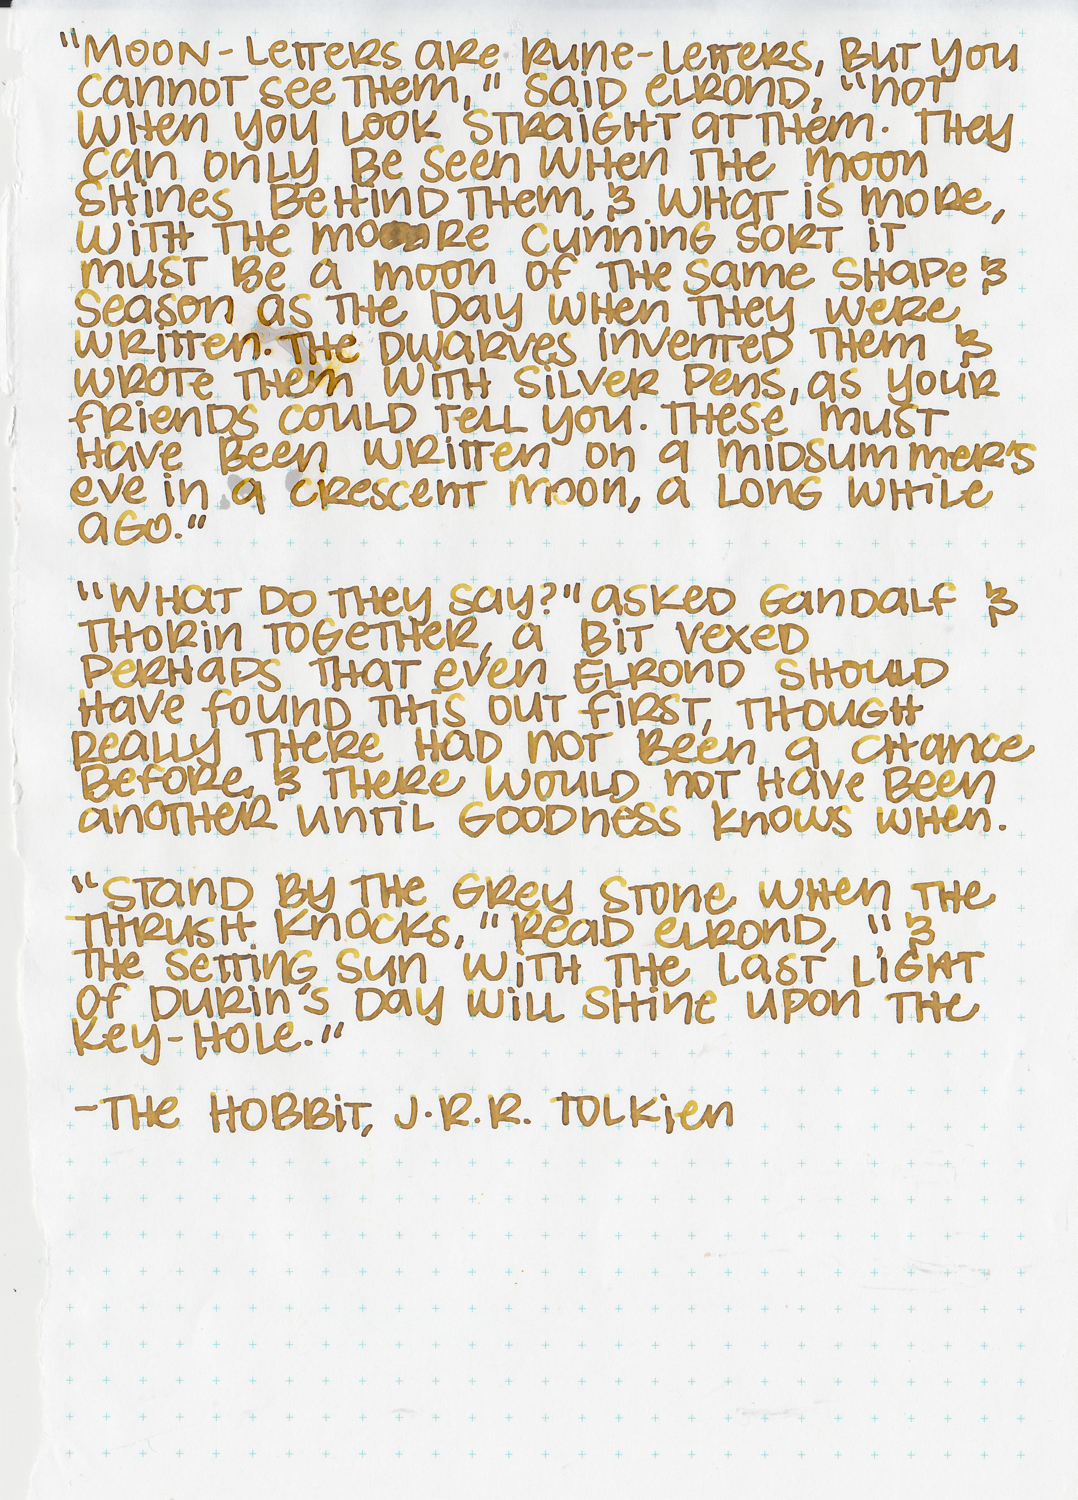 "Moon-letters are rune-letters, but you
cannot see them," said Elrond, "not
when you look straight at them. They
can only be seen when the moon
shines behind them, & what is more,
with the more cunning sort it
must be a moon of the same shape &
season as the day when they were
written. The dwarves invented them &
wrote them with silver pens, as your
friends could tell you. These must
have been written on a midsummer's
eve in a crescent moon, a long while
ago."
"What do they say?" asked Gandalf &
Thorin together, a bit vexed
perhaps that even Elrond should
have found this out first, though
really there had not been a chance
before, & there would not have been
another until goodness knows when.
"Stand by the grey stone when the
thrush knocks," read Elrond, "&
the setting sun with the last light
of Durin's Day will shine upon the
key-hole."
-The Hobbit, J.R.R. Tolkien